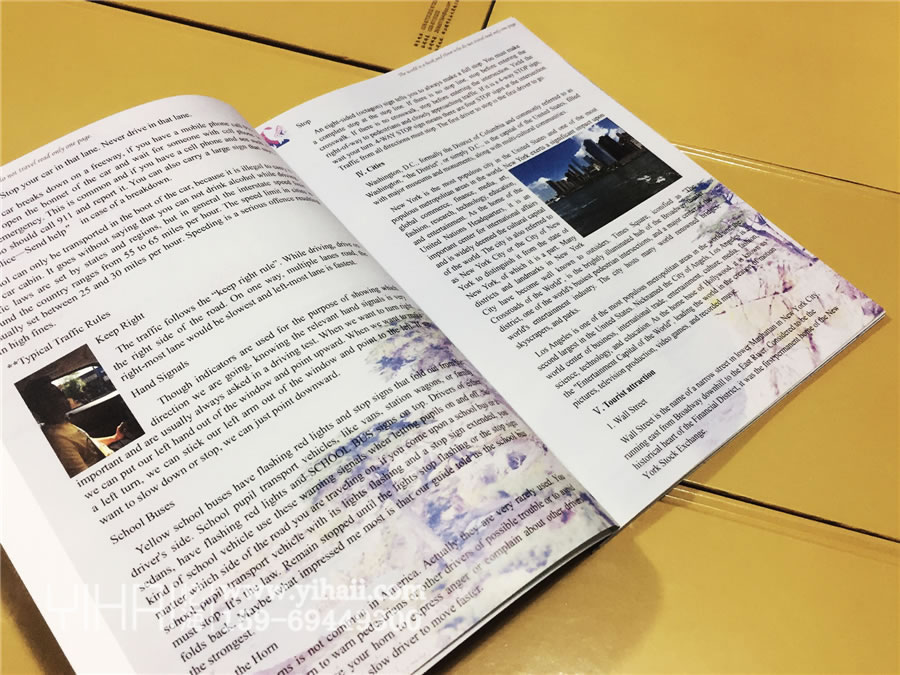 do not travel read only one page.
Stop your car in that lane. Never drive in that lane.
car breaks down on a freeway, if you have a mobile phone
open the bonnet of the car and wait for someone with cell phone
emergency. This is common and if you have a cell phone and see
should call 911 and report it. You can also carry a large sign that
"lice—Send help" in case of a breakdown.
can only be transported in the boot of the car, because it is illegal
car cabin. It goes without saying that you can not drink alcohol while
c laws are set by states and regions, but in general the interstate speed
und the country ranges from 55 to 65 miles per hour. The speed
ually set between 25 and 30 miles per hour. Speeding is a serious offence
in high fines.
**Typical Traffic Rules
Keep Right
The traffic follows the "keep right rule". While driving, drive
the right side of the road. On one way, multiple lanes road, the
right-most lane would be slowest and left-most lane is fastest.
Hand Signals
Though indicators are used for the purpose of showing which
direction we are going, knowing the relevant hand signals is very
important and are usually asked in a driving test. When we want to turn
we can put our left hand out of the window and point upward. When we want
a left turn, we can stick our left arm out of the window and point
want to slow down or stop, we can just point downward.
School Buses
Yellow school buses have flashing red lights and stop signs that fold out from
driver's side. School pupil transport vehicles, like vans, station wagons, or
sedans, have flashing red lights and SCHOOL BUS signs on top. Drivers of
and of school vehicle use these warning signals when letting pupils on and off
matter which side of the road you are traveling on, if you come upon a school
school pupil transport vehicle with its lights flashing and a stop sign extended, you
must stop. It's the law. Remain stopped until the lights stop flashing or the stop sign
folds back. Maybe what impressed me most is that our guide told us the school
the strongest.
the Horn
horns is not common in America. Actually they are very rarely used.
to warn pedestrians or other drivers of possible trouble or to
use your horn to express anger or complain about other
slow driver to move faster.
The world is a book and those who do not travel read only one page
Stop
An eight-sided (octagon) sign tells you to always make a full stop. You must make
a complete stop at the stop line. If there is no stop line, stop before entering the
crosswalk. If there is no crosswalk, stop before entering the intersection. Yield the
right-of-way to pedestrians and closely approaching traffic. If it is a 4-way STOP sign,
wait your turn. 4-WAY STOP sign means there are four STOP signs at the intersection.
Traffic from all directions must stop. The first driver to stop is the first driver to go.
IV. Cities
Washington, D.C., formally the District of Columbia and commonly referred to as
Washington, "the District", or simply D.C., is the capital of the United States, filled
with major museums and monuments, along with multi-cultural communities.
New York is the most populous city in the United States and one of the most
populous metropolitan areas in the world. New York exerts a significant impact upon
global commerce, finance, media, art,
fashion, research, technology, education,
and entertainment. As the home of the
United Nations Headquarters, it is an
important center for international affairs
and is widely deemed the cultural capital
of the world. The city is also referred to
as New York City or the City of New
York to distinguish it from the state of
New York, of which it is a part. Many
districts and landmarks in New York
City have become well known to outsiders. Times Square, iconified as "The
Crossroads of the World", is the brightly illuminated hub of the Broadway theater
district, one of the world's busiest pedestrian intersections, and a major center of the
world's entertainment industry. The city hosts many world renowned bridges,
skyscrapers, and parks.
Los Angeles is one of the most populous metropolitan areas in the world and the
second largest in the United States. Nicknamed the City of Angels, Los Angeles is a
world center of business, international trade, entertainment, culture, media, fashion,
science, technology, and education. As the home base of Hollywood, it is known as
the "Entertainment Capital of the World", leading the world in the creation of motion
pictures, television production, video games, and recorded music.
V. Tourist attraction
1. Wall Street
Wall Street is the name of a narrow street in lower Manhattan in New York City,
running east from Broadway downhill to the East River. Considered to be the
historical heart of the Financial District, it was the first permanent home of the New
York Stock Exchange
YIHAII
www.yihaii.com